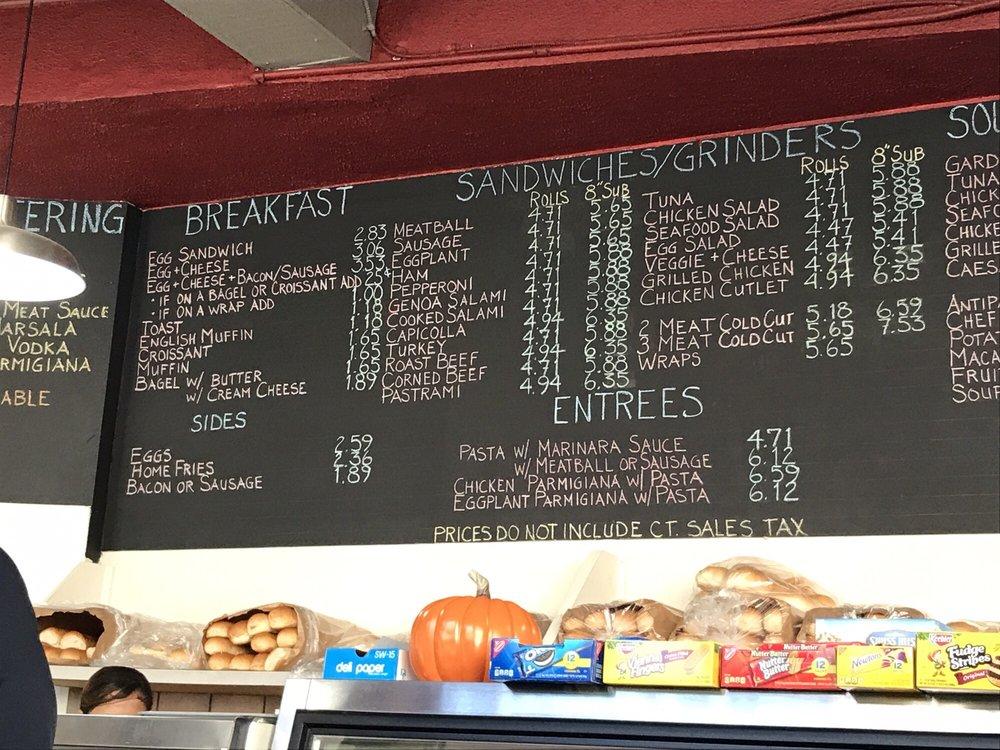 ERING
MEAT SAUCE
ARSALA
VODKA
RMIGIANA
ABLE
BREAKFAST
EGG SANDWICH 2.83
EGG + CHEESE 3.06
EGG + CHEESE + BACON/SAUSAGE
• IF ON A BAGEL OR CROISSANT ADD
• IF ON A WRAP ADD
TOAST
ENGLISH MUFFIN
CROISSANT
MUFFIN 1.65
BAGEL W/ BUTTER 1.65
W/ CREAM CHEESE 1.89
SIDES
EGGS 2.59
HOME FRIES 2.36
BACON OR SAUSAGE 1.89
SANDWICHES/GRINDERS
ROLLS 8" SUB
MEATBALL 4.71 5.65
SAUSAGE 4.71 5.65
EGGPLANT 4.71
HAM 4.71 5.88
PEPPERONI 4.71 5.88
GENOA SALAMI 4.71 5.88
COOKED SALAMI 4.71 5.88
CAPICOLLA 4.94 6.35
TURKEY 4.71 5.88
ROAST BEEF 4.94
CORNED BEEF 4.94
PASTRAMI 4.94 6.35
ROLLS 8" SUB
TUNA 4.71 5.88
CHICKEN SALAD 4.71 5.88
SEAFOOD SALAD 4.71 5.88
EGG SALAD 4.47 5.41
VEGGIE + CHEESE 4.47 5.41
GRILLED CHICKEN 4.94 6.35
CHICKEN CUTLET 4.94 6.35
2 MEAT COLD CUT 5.18 6.59
3 MEAT COLD CUT 5.65 7.53
WRAPS 5.65
ENTREES
PASTA W/ MARINARA SAUCE 4.71
W/ MEATBALL OR SAUSAGE 6.12
CHICKEN PARMIGIANA W/ PASTA 6.59
EGGPLANT PARMIGIANA W/ PASTA 6.12
PRICES DO NOT INCLUDE CT. SALES TAX
SOU
GARD
TUNA
CHICK
SEAFO
CHICKE
GRILLE
CAES
ANTIPA
CHEF
POTA
MACA
FRUIT
SOUP
SW-15
deli paper
12
Vienna Fingers
Nutter Butter
Nutter Butter
12
Newtons
12
SWISS MISS
Keebler
Fudge Stripes
Original